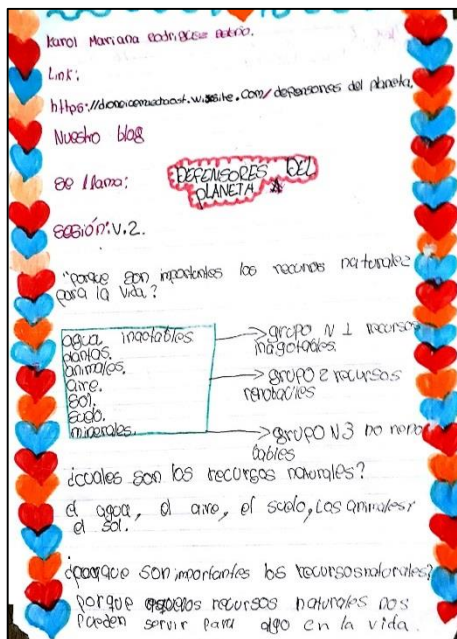 Karol Mariana Rodriguez
Link:
defensores del planeta.
Nuestro blog
se llama:
DEFENSORES DEL
PLANETA
sesión: V.2.
"porque son importantes los recursos naturales
para la vida?
agua, ingotables.
plantas.
animales.
aire.
sol.
suelo.
minerales.
grupo N 1 recursos
inagotables.
grupo 2 recursos
grupo N3 no reno
bables
¿cuales son los recursos naturales?
el agua, el aire, el suelo, los animales,
el sol.
son importantes los recursos naturales?
porque recursos naturales nos
pueden servir para algo en la vida.